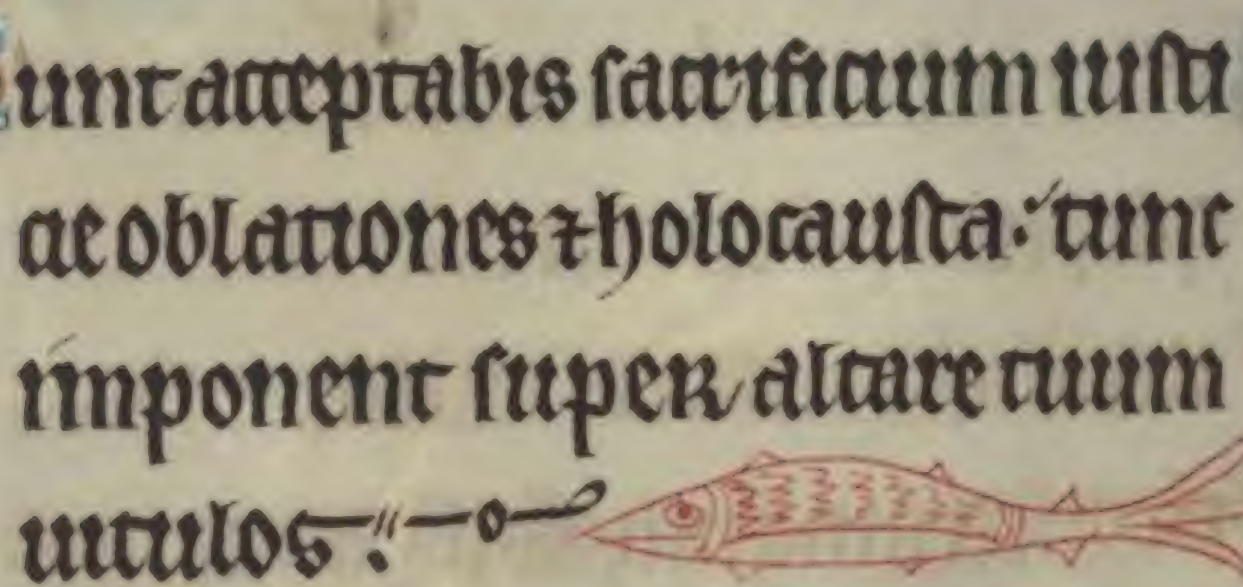 unc acceptabis sacrificium iusti
cie oblationes ⁊ holocausta: tunc
imponent super altare tuum
uitulos